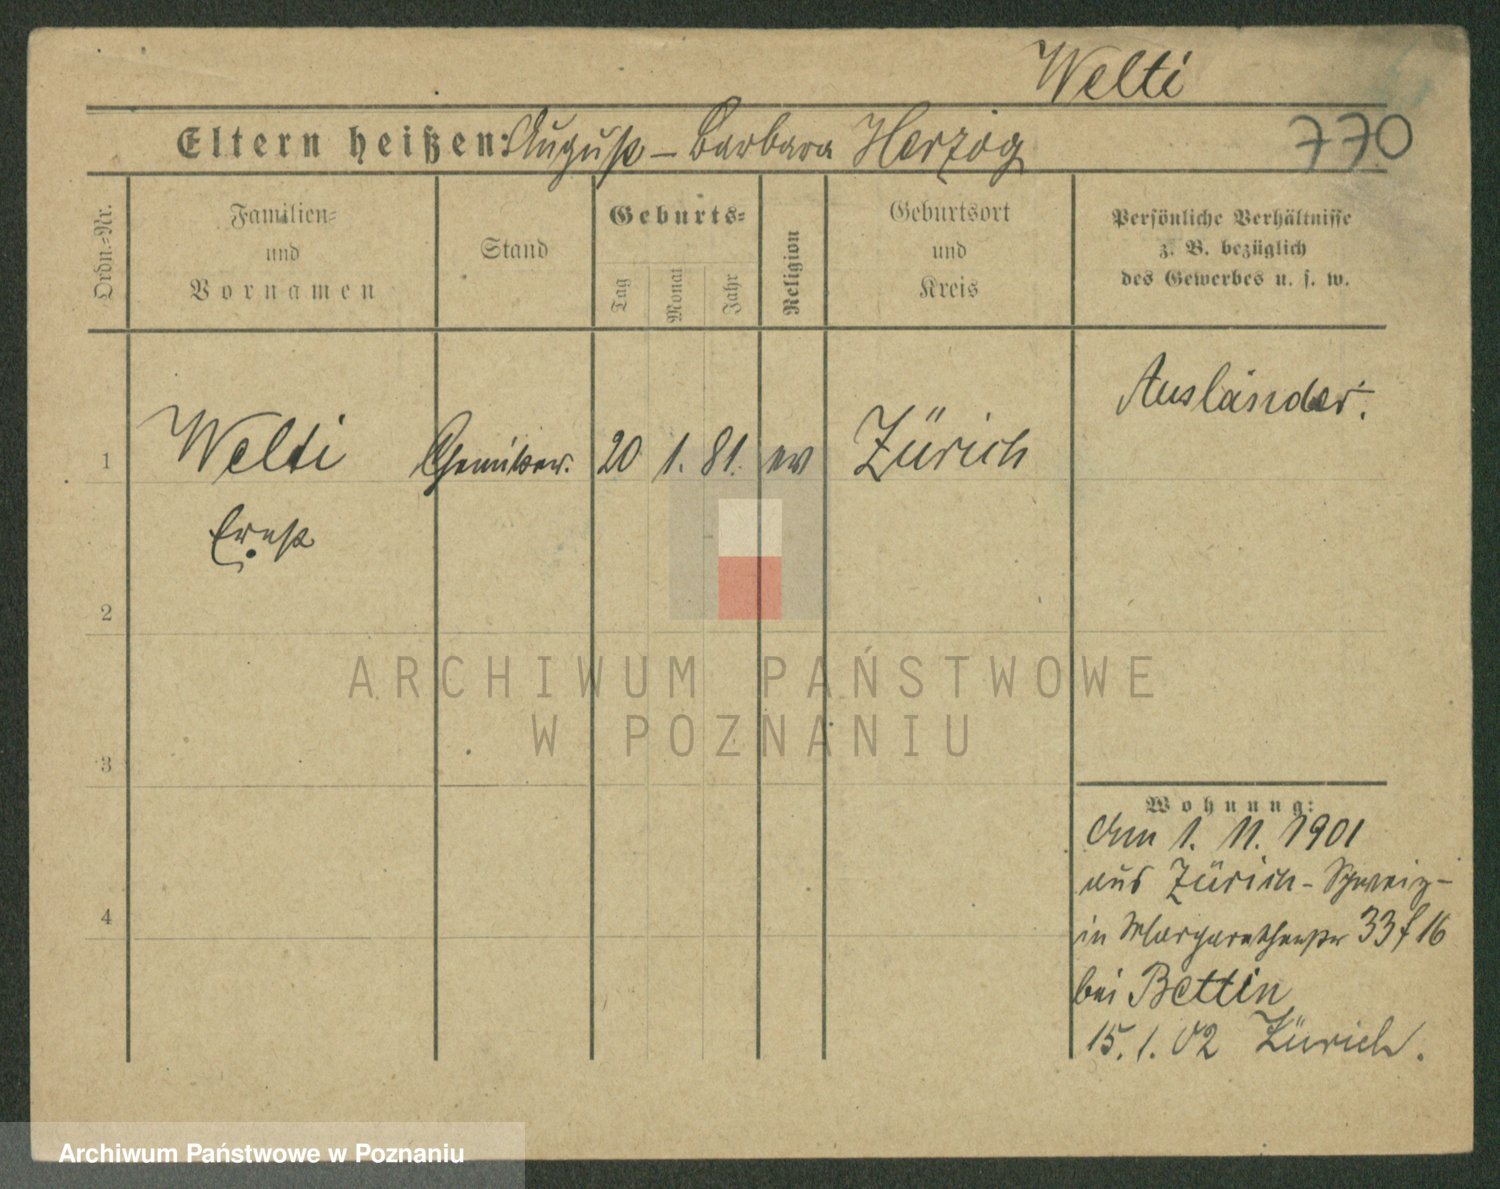 Welti
770
Eltern heißen: August – Barbara Herzog
Ordn.=Nr.
Familien=
und
Vornamen
Stand
Geburts=
Tag
Monat
Jahr
Religion
Geburtsort
und
Kreis
Persönliche Verhältnisse
z. B. bezüglich
des Gewerbes u. s. w.
Ausländer.
1 Welti Chemiker. 20 1. 81. ev Zürich
Ernst
2
3
4
ARCHIWUM PAŃSTWOWE
W POZNANIU
Wohnung:
Am 1. 11. 1901
aus Zürich – Schweiz –
in Margarethenstr 33 f 16
bei Bettin
15. 1. 02 Zürich.
Archiwum Państwowe w Poznaniu